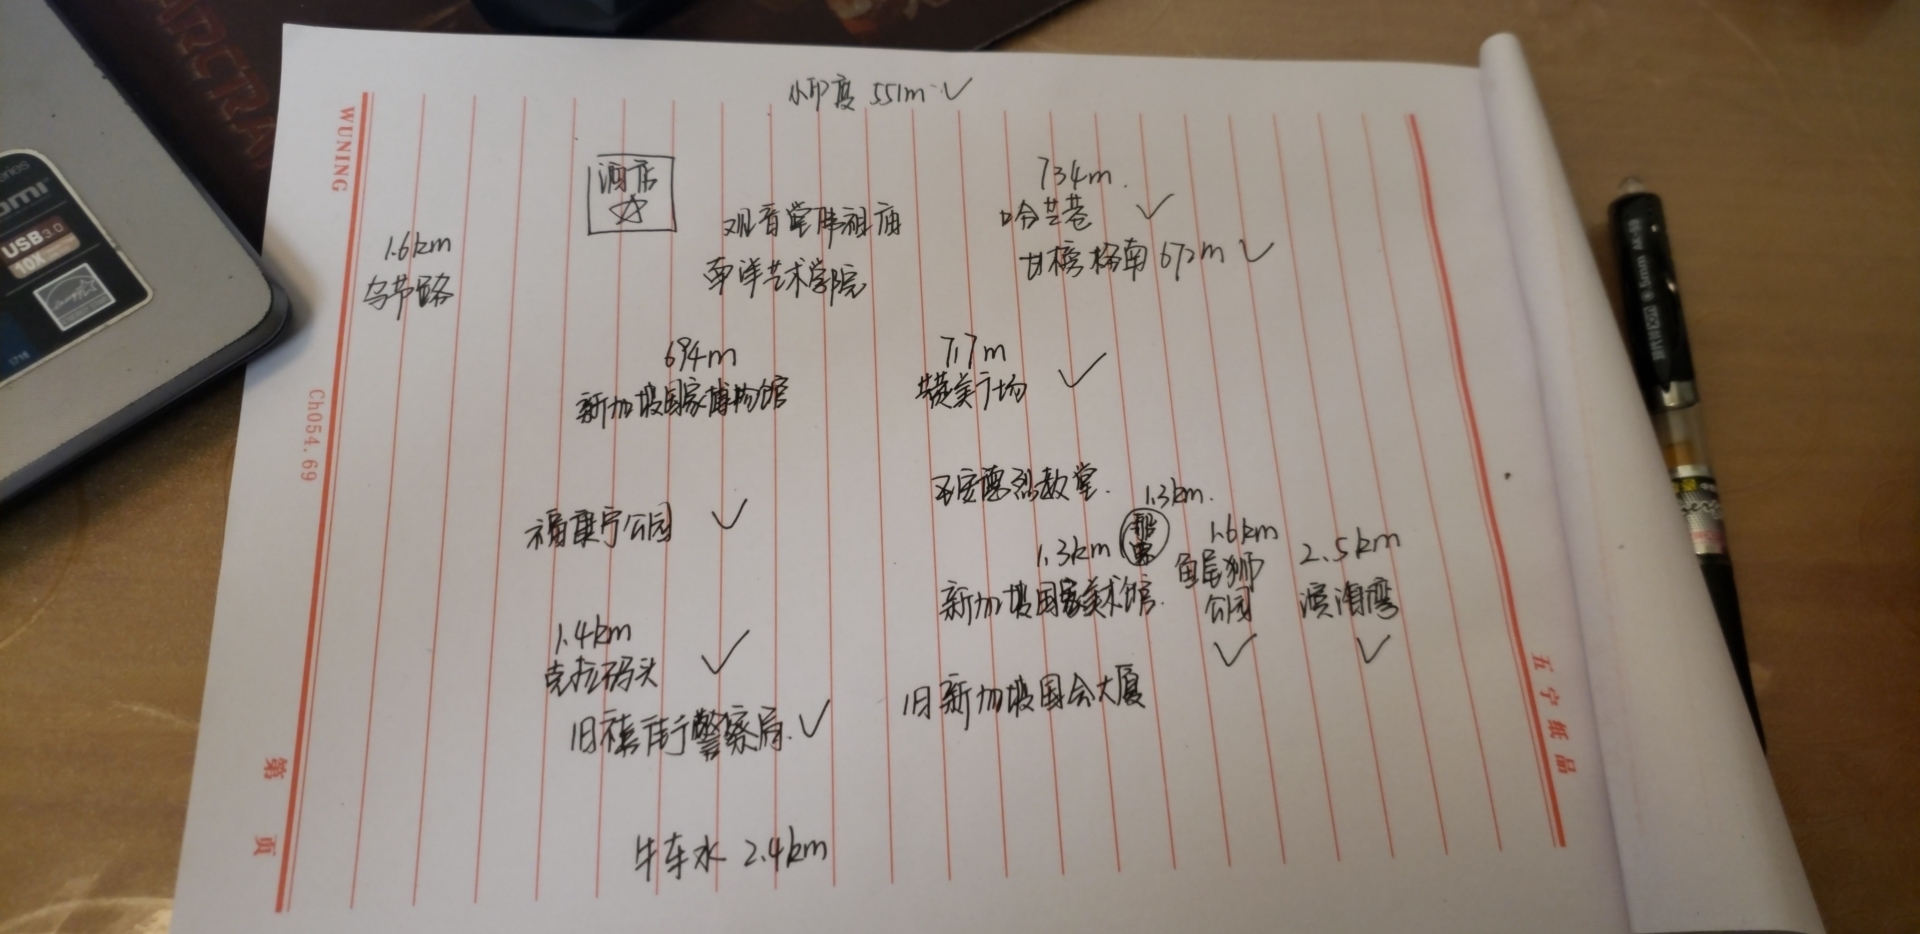 小印度 551m ✓
酒店
734m.
哈芝巷 ✓
观音堂佛祖庙
甘榜格南 672m ✓
南洋艺术学院
1.6km
乌节路
694m
新加坡国家博物馆
717m
赞美广场 ✓
圣安德烈教堂.
福康宁公园 ✓
1.3km.
船
1.3km
新加坡国家美术馆.
1.6km
鱼尾狮
公园
✓
2.5km
滨海湾
✓
1.4km
克拉码头 ✓
旧禧街警察局. ✓
旧新加坡国会大厦
牛车水 2.4km
WUNING
Ch054.69
第 页
五宁纸品
USB 3.0
10X